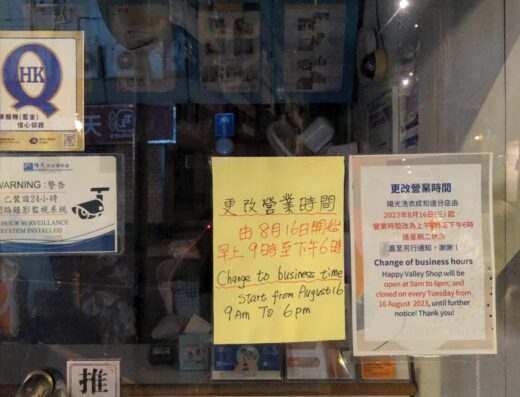 HK
信心保證
WARNING:警告
已裝設24小時
閉路錄影監視系統
HOUR SURVEILLANCE
SYSTEM INSTALLED
更改營業時間
由8月16日開始
早上9時至下午6時
Change to business time
Start from August 16
9AM TO 6pm
更改營業時間
陽光洗衣成和道分店由
2023年8月16日(三)起,
營業時間改為上午9時至下午6時
逢星期二休息
直至另行通知,謝謝!
Change of business hours
Happy Valley Shop will be
open at 9am to 6pm, and
closed on every Tuesday from
16 August 2023, until further
notice! Thank you!
推